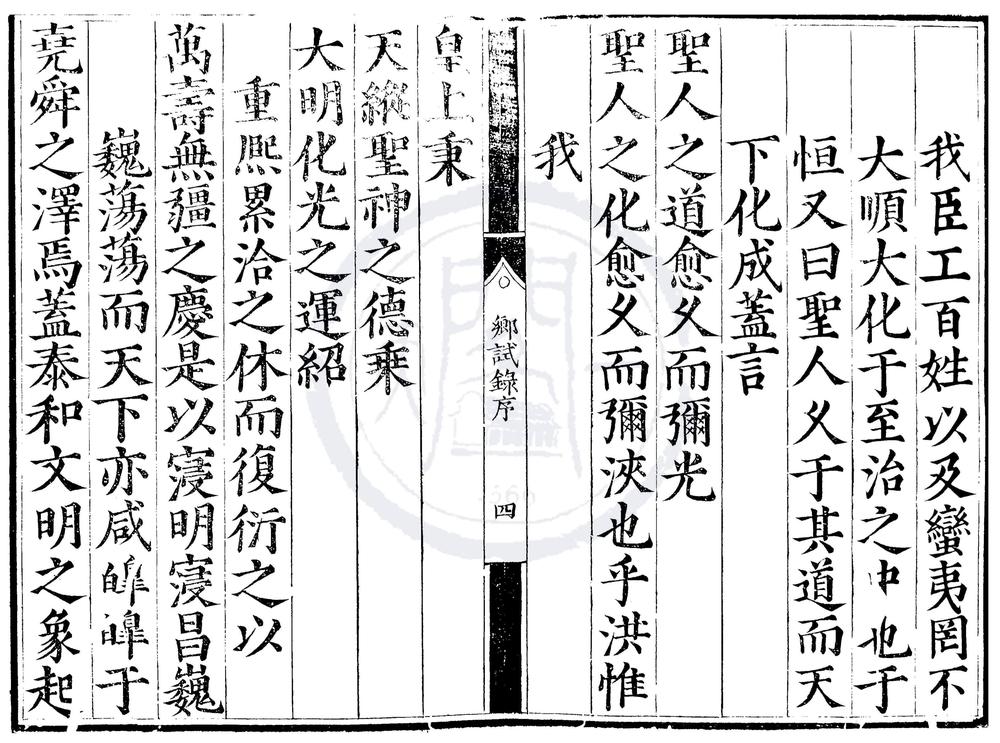 我臣工百姓以及蠻夷罔不
大順大化于至治之中也于
恒又曰聖人久于其道而天
下化成蓋言
聖人之道愈久而彌光
聖人之化愈久而彌浹也乎洪惟
我
鄉試錄序
四
皇上秉
天縱聖神之德乗
大明化光之運紹
重熈累洽之休而復衍之以
萬壽無彊之慶是以寖明寖昌巍
巍蕩蕩而天下亦咸皥皥于
堯舜之澤焉蓋泰和文明之象起